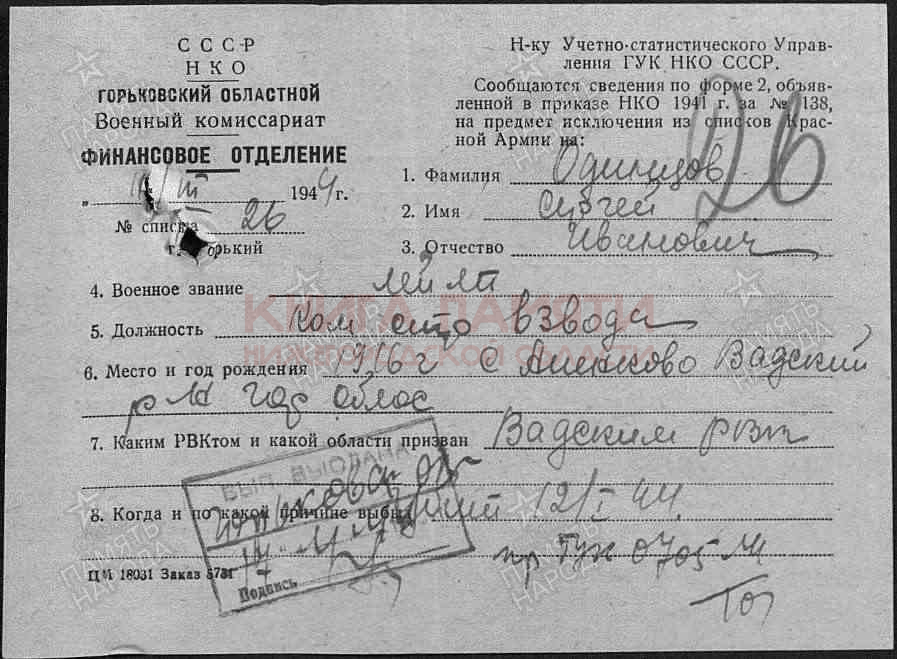 СССР
НКО
ГОРЬКОВСКИЙ ОБЛАСТНОЙ
Военный комиссариат
ФИНАНСОВОЕ ОТДЕЛЕНИЕ
„ III 1944 г.
№ списка 26
г. Горький
Н-ку Учетно-статистического Управ-
ления ГУК НКО СССР.
Сообщаются сведения по форме 2, объяв-
ленной в приказе НКО 1941 г. за № 138,
на предмет исключения из списков Крас-
ной Армии на:
26
1. Фамилия Одинцов
2. Имя Сергей
3. Отчество Иванович
4. Военное звание
КНИГА ПАМЯТИ
5. Должность Ком стр взвода
НИЖЕГОРОДСКОЙ ОБЛАСТИ
6. Место и год рождения 1916 г с Аненково Вадский
р н Гор облас
7. Каким РВКтом и какой области призван Вадским рвк
ВЫП. ВЫСЛАНА
8. Когда и по какой причине выбыл 12/I 44.
пр ГУК 0705 М
Подпись
ЦМ 18031 Заказ 5731
ПАМЯТЬ НАРОДА